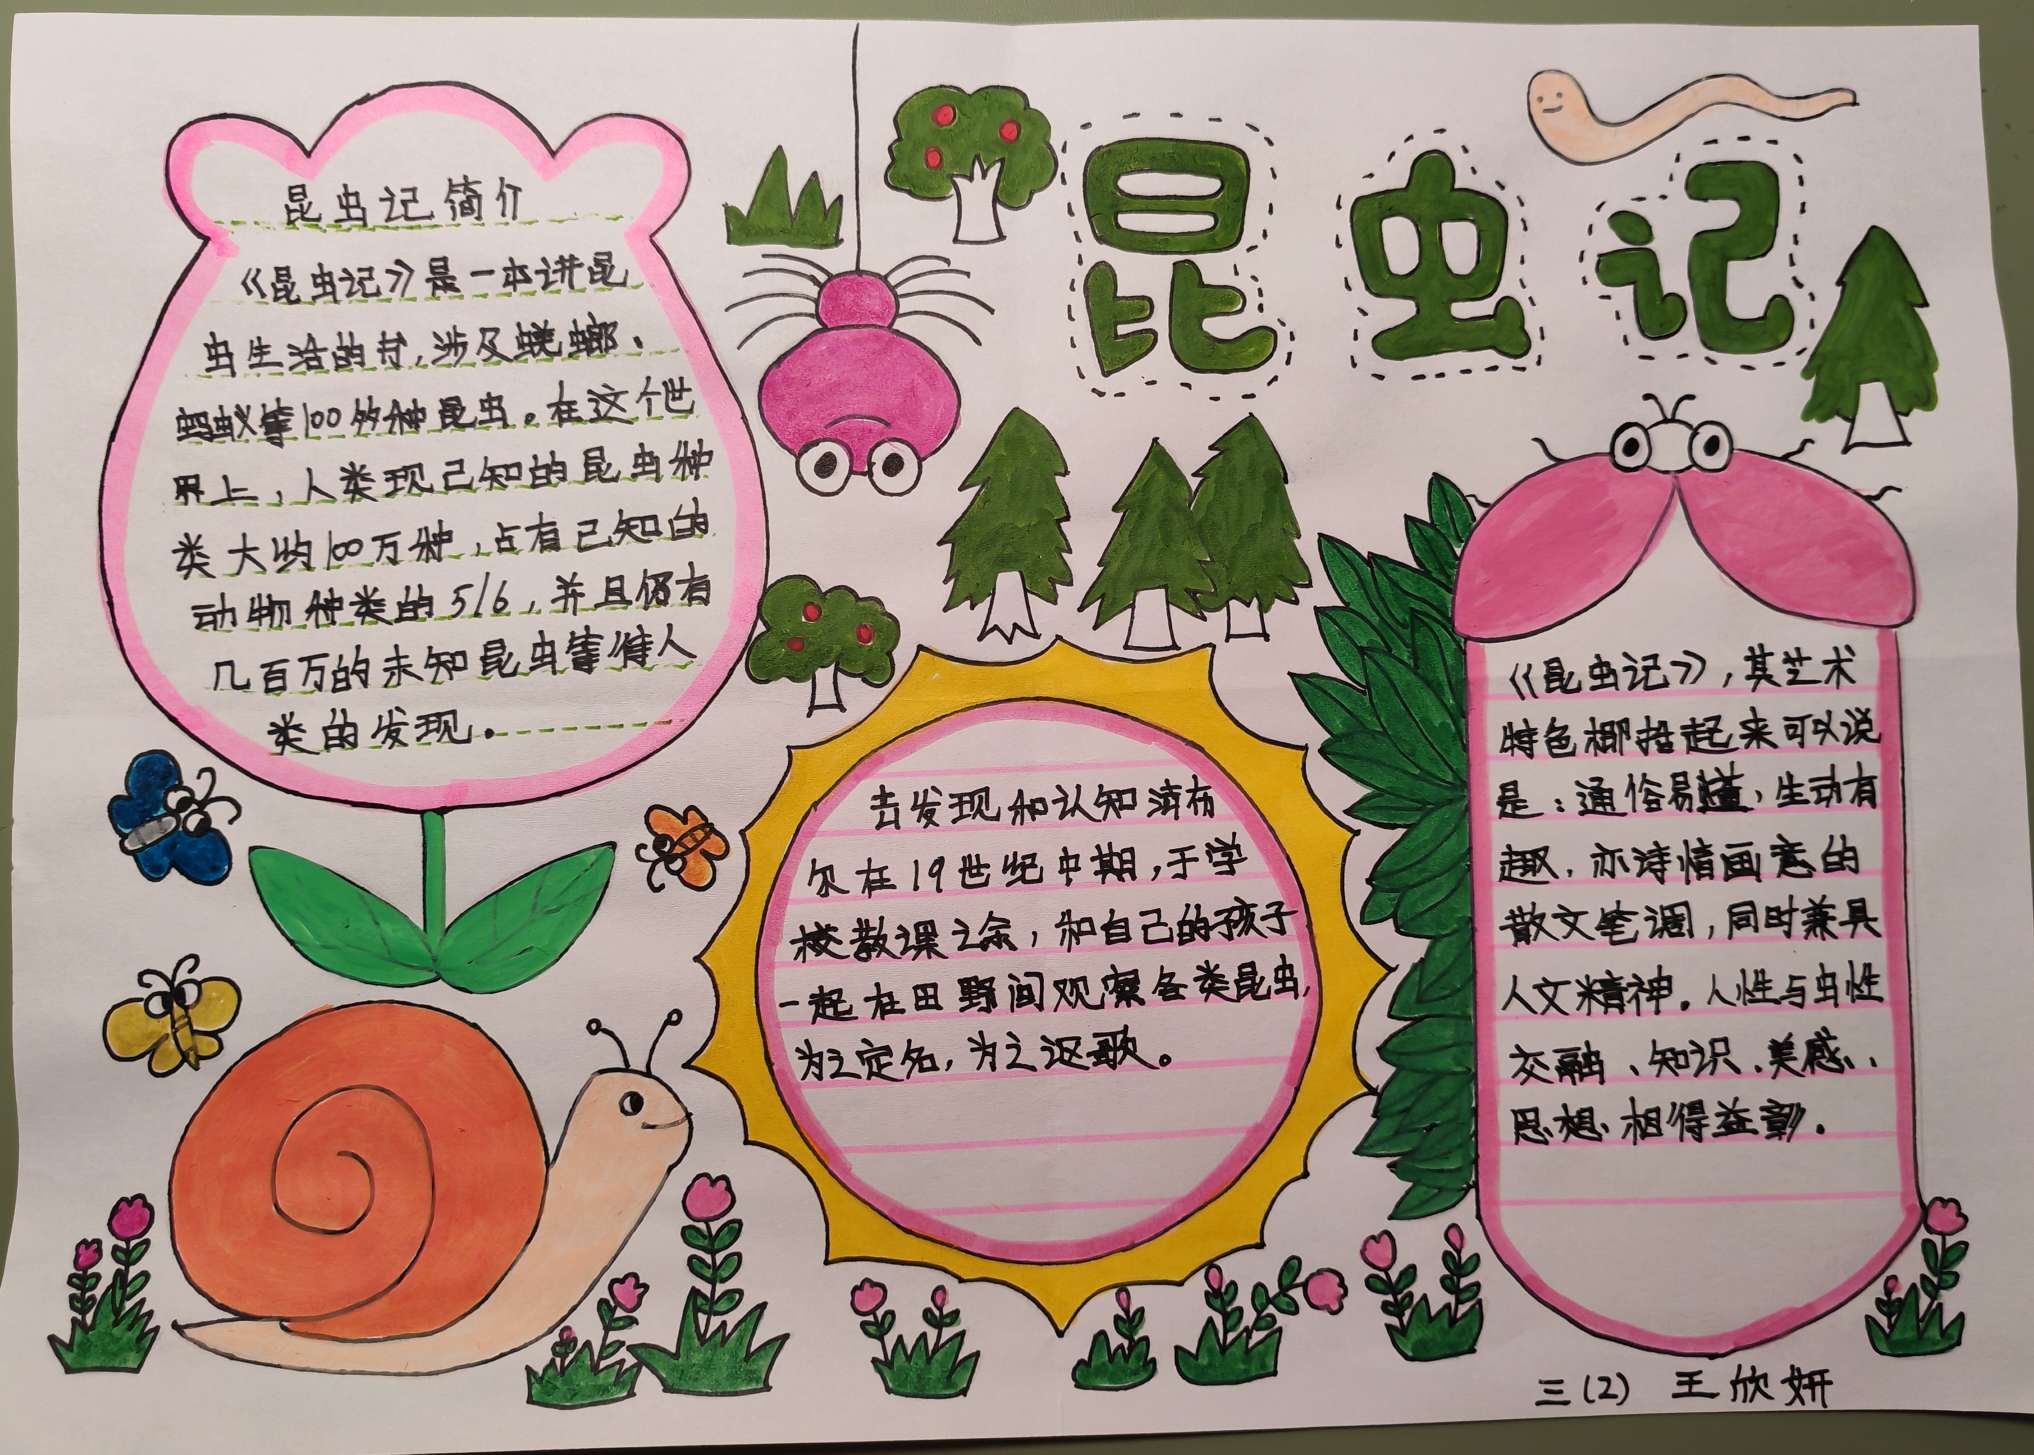 昆虫记
昆虫记简介
《昆虫记》是一本讲昆
虫生活的书,涉及蜣螂、
蚂蚁等100多种昆虫。在这个世
界上,人类现已知的昆虫种
类大约100万种,占有已知的
动物种类的5/6,并且仍有
几百万的未知昆虫等待人
类的发现。
去发现和认知
尔在19世纪中期,于学
校教课之余,和自己的孩子
一起在田野间观察各类昆虫,
为之定名,为之讴歌。
《昆虫记》,其艺术
特色概括起来可以说
是:通俗易懂,生动有
趣,亦诗情画意的
散文笔调,同时兼具
人文精神。人性与虫性
交融、知识、美感、
思想相得益彰。
三(2) 王欣妍